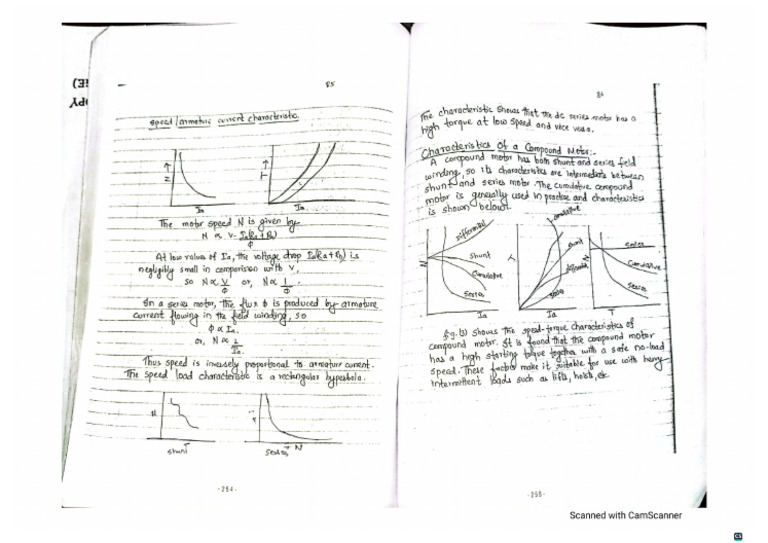 85
speed/armature current characteristic.
N
Ia
T
Ia
The motor speed N is given by
N ∝ V-Ia(Ra+Rs)
ϕ
At low values of Ia, the voltage drop Ia(Ra+Rs) is
negligibly small in comparison with V,
so N ∝ V/ϕ or, N ∝ 1/ϕ.
In a series motor, the flux ϕ is produced by armature
current flowing in the field winding, so
ϕ ∝ Ia
or, N ∝ 1/Ia.
Thus speed is inversely proportional to armature current.
The speed load characteristic is a rectangular hyperbola.
N
T
shunt
T
N
series
-254-
86
The characteristic shows that the dc series motor has a
high torque at low speed and vice vesa.
Characteristics Of a Compound Motor:-
A compound motor has both shunt and series field
winding, so its characteristics are intermediate between
shunt and series motor. The cumulative compound
motor is generally used in practise and characteristics
is shown below.
Differential
Shunt
Cumulative
Series
N
Ia
Cumulative
shunt
Ia
N
Cumulative
Series
T
fig.(b) shows the speed-torque characteristics of
compound motor. It is found that the compound motor
has a high starting torque together with a safe no-load
speed. These factors make it suitable for use with heavy
intermittent loads such as lifts, hoists, etc
-255-
Scanned with CamScanner
CS